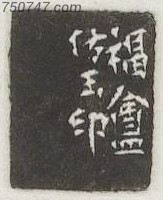 750747.com
福盦
仿玉印